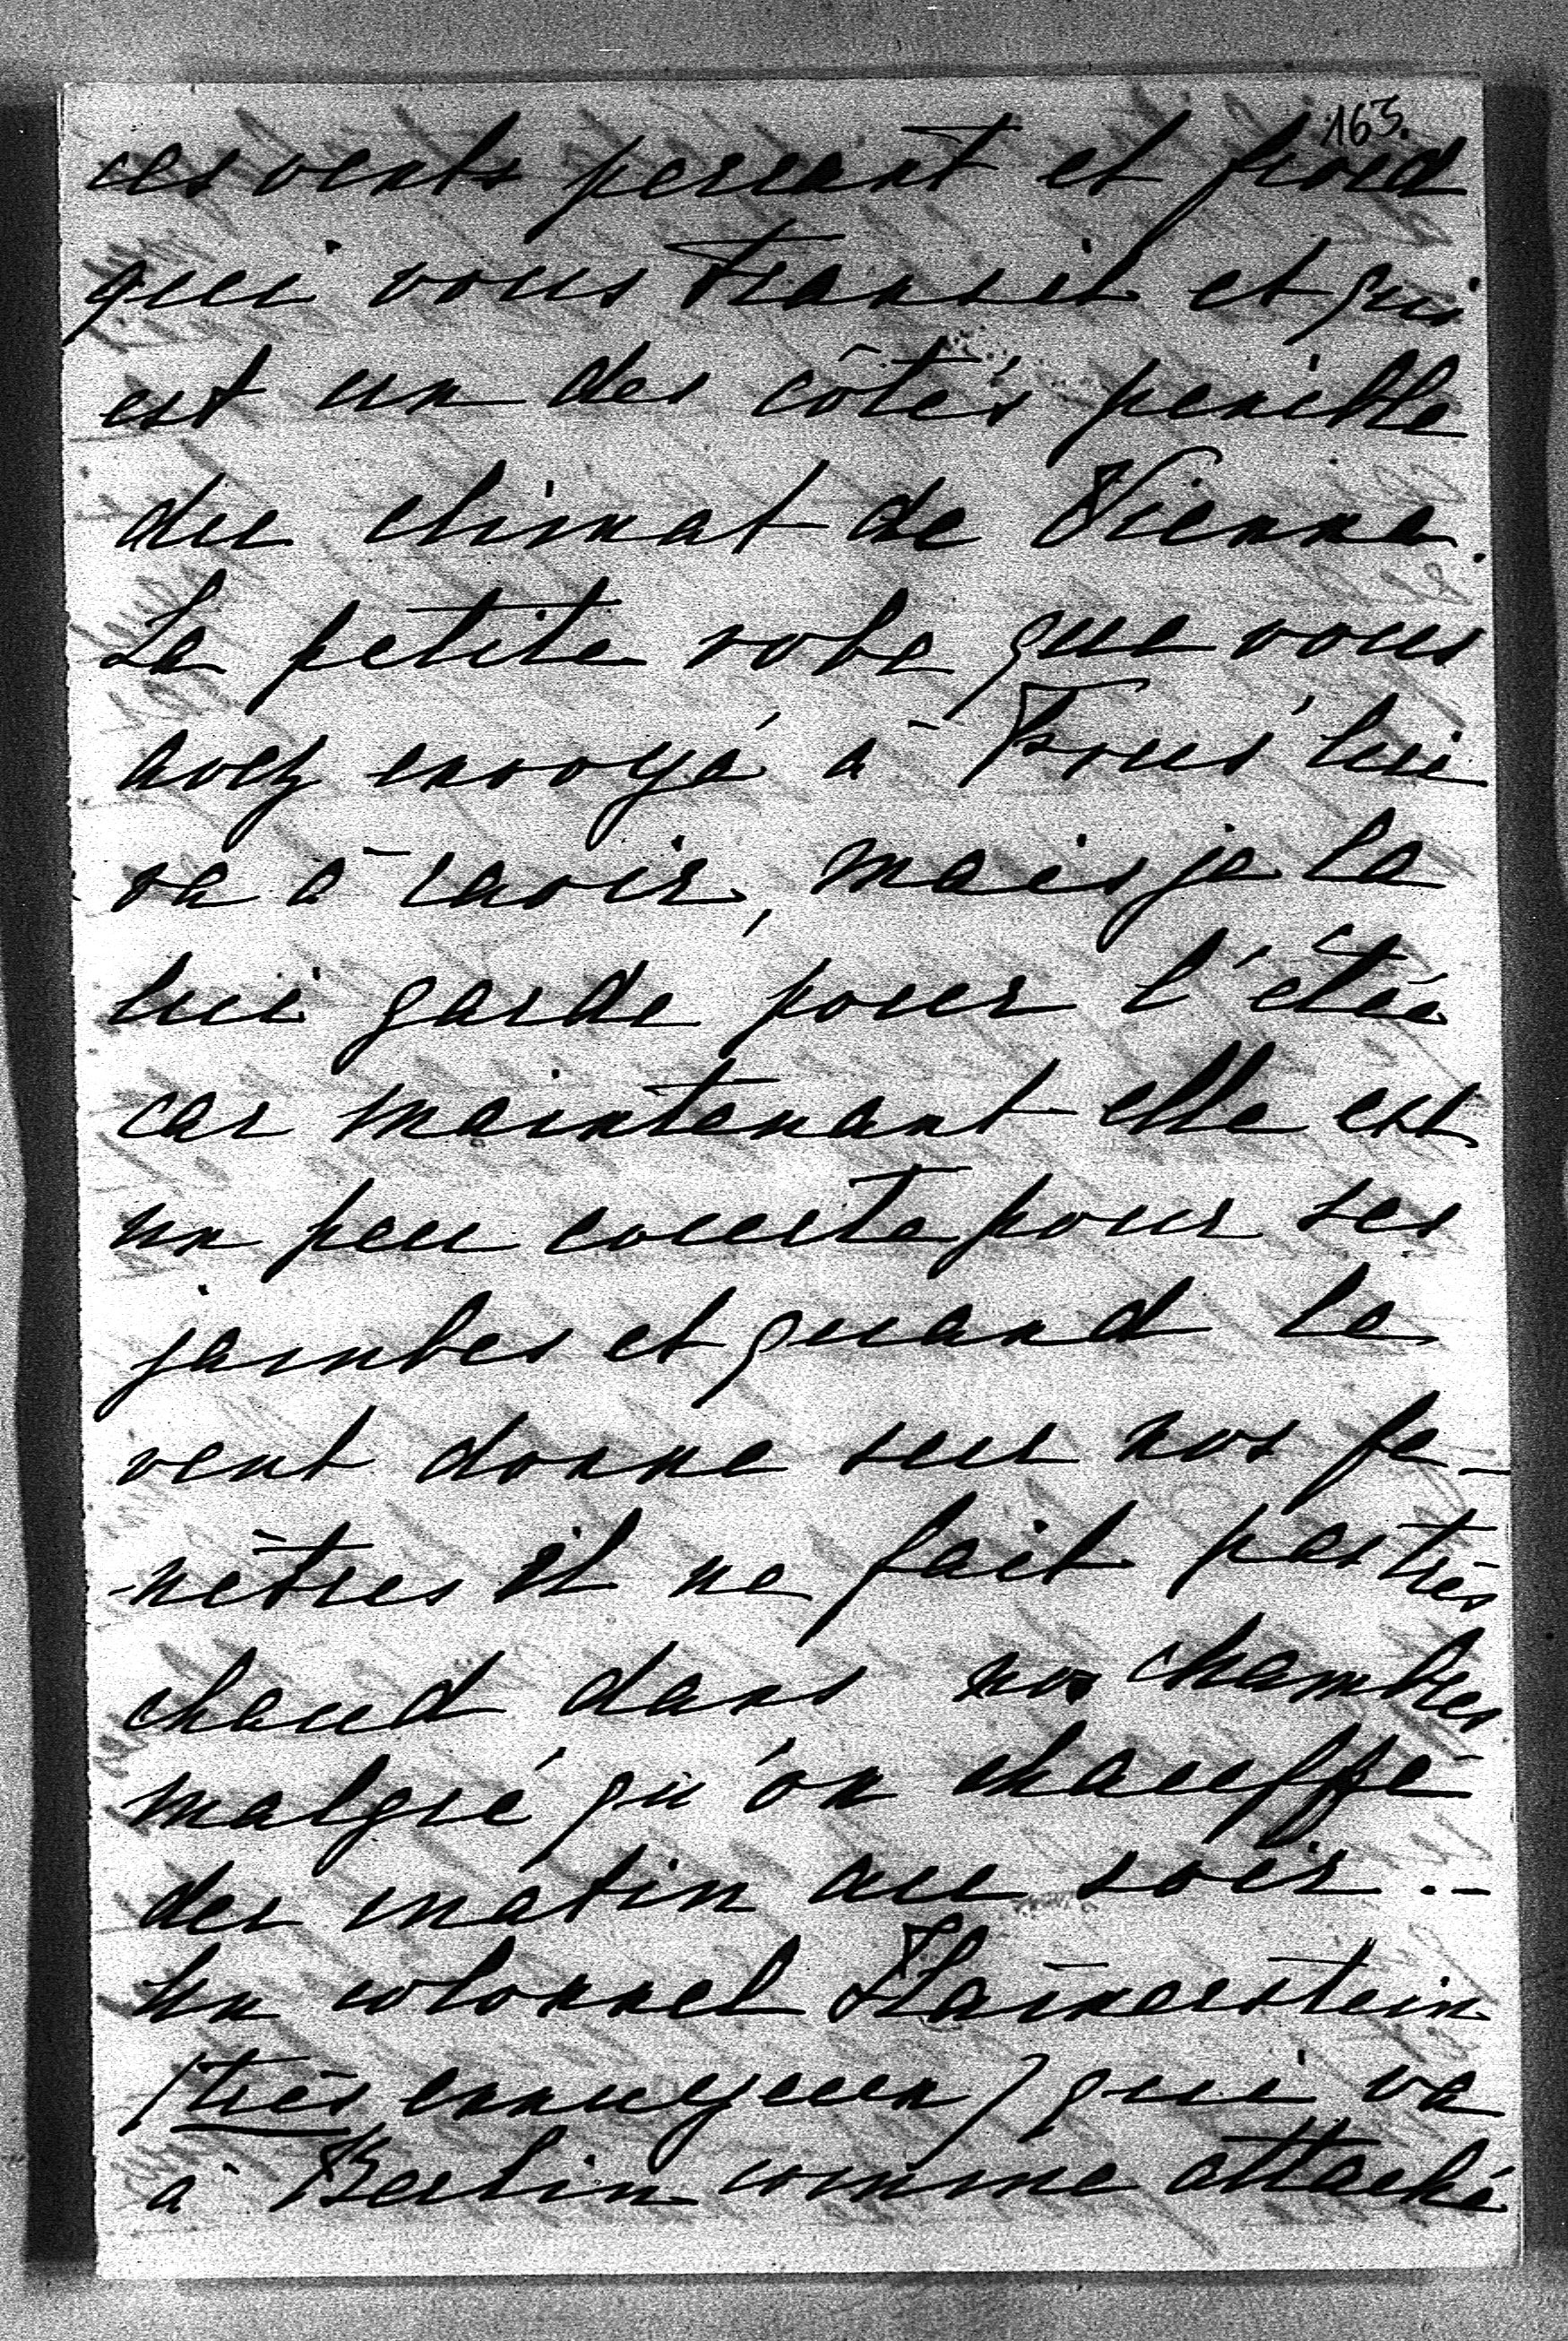 163.
ces vents persant et froid
qui vous transit et qui
est un des côtés penible
du climat de Vienne.
La petite robe que vous
avez envoyé à lui
va à ravir, mais je la
lui garde pour l'étée
car maintenant elle est
un peu courte pour ses
jambes et quand le
vent donne sur nos fe-
-nêtres il ne fait pas très
chaud dans nos chambres
malgré qu'on chauffe
des matin au soir.-
Un colonnel
(très ennuyeux) qui va
à Berlin comme attaché